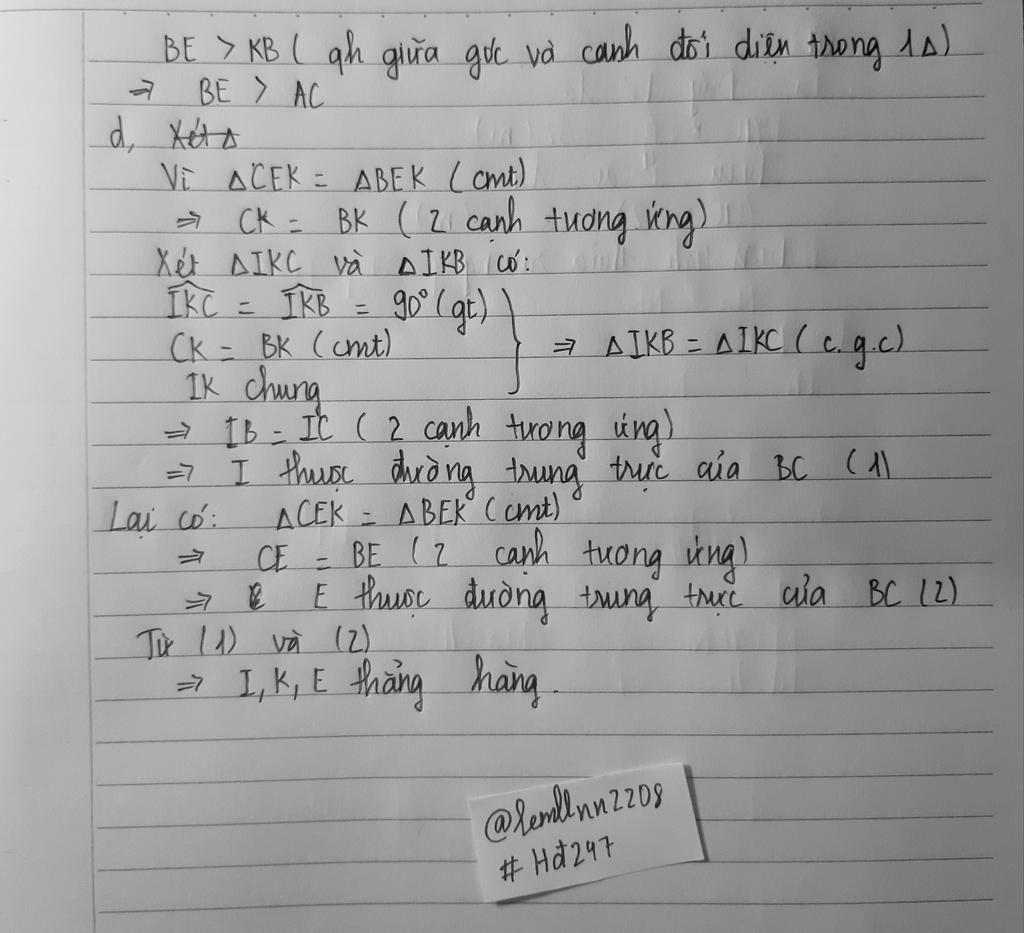 BE > KB ( qh giữa góc và cạnh đối diện trong 1Δ)
⇒ BE > AC
d, Xét Δ
Vì ΔCEK = ΔBEK (cmt)
⇒ CK = BK ( 2 cạnh tương ứng)
Xét ΔIKC và ΔIKB có:
IKC = IKB = 90° (gt)
CK = BK (cmt) ⇒ ΔIKB = ΔIKC ( c.g.c)
IK chung
⇒ IB = IC ( 2 cạnh tương ứng)
⇒ I thuộc đường trung trực của BC (1)
Lại có: ΔCEK = ΔBEK (cmt)
⇒ CE = BE ( 2 cạnh tương ứng)
⇒ E thuộc đường trung trực của BC (2)
Từ (1) và (2)
⇒ I, K, E thẳng hàng.
# Hđ247